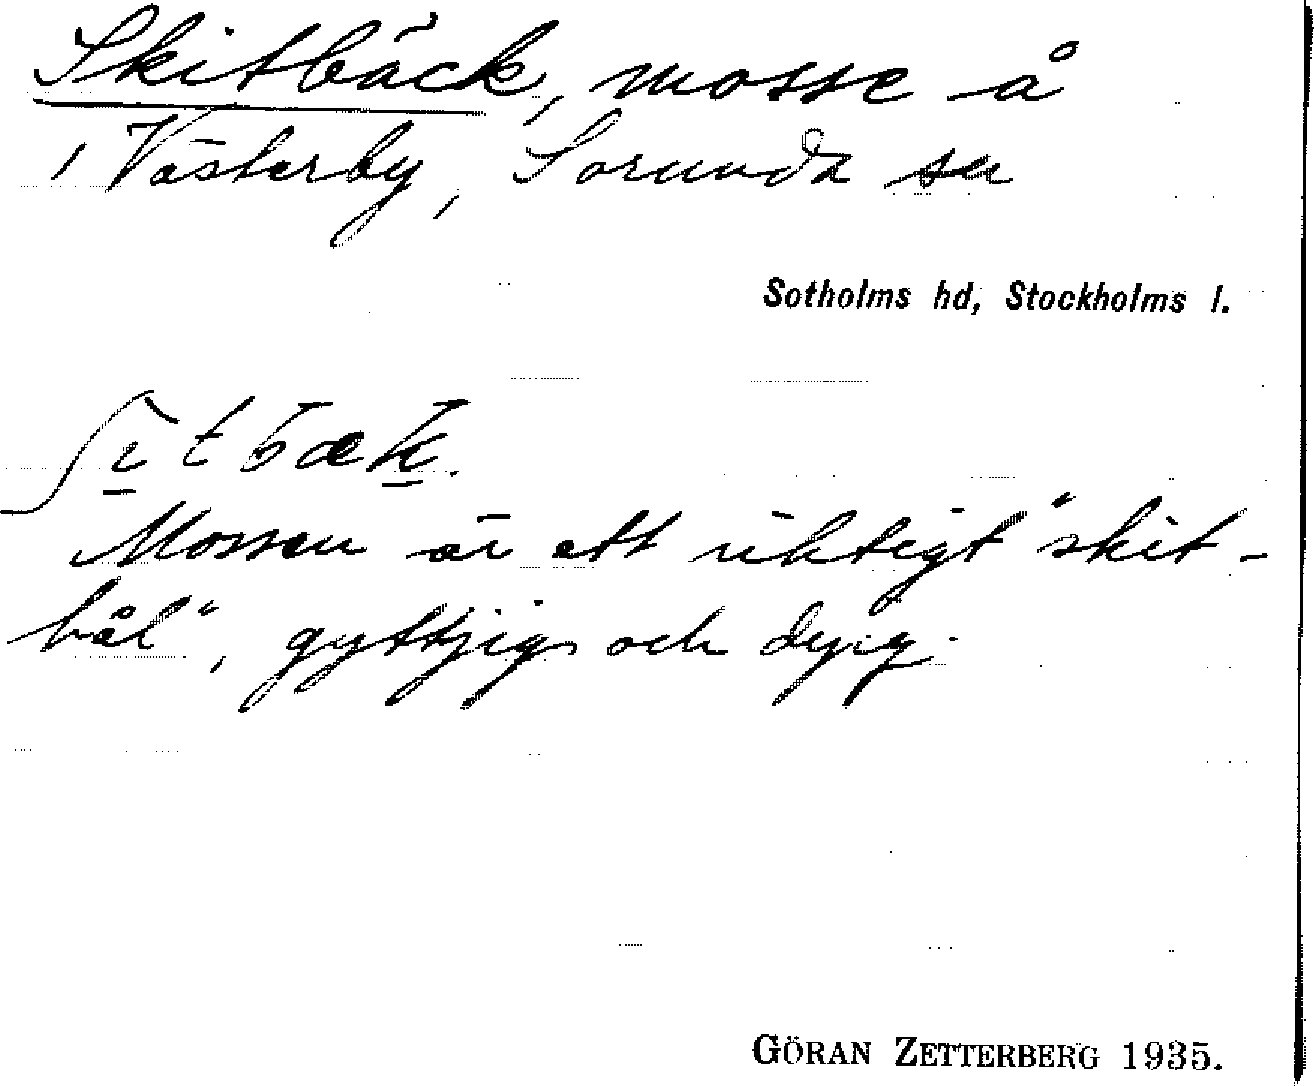 Skitbäck, mosse å
, Västerby, Sorunda sn
Sotholms hd, Stockholms l.
ʃɩtbæk.
Mossen är ett riktigt "skit-
hål", gyttjig och dyig.
GÖRAN ZETTERBERG 1935.